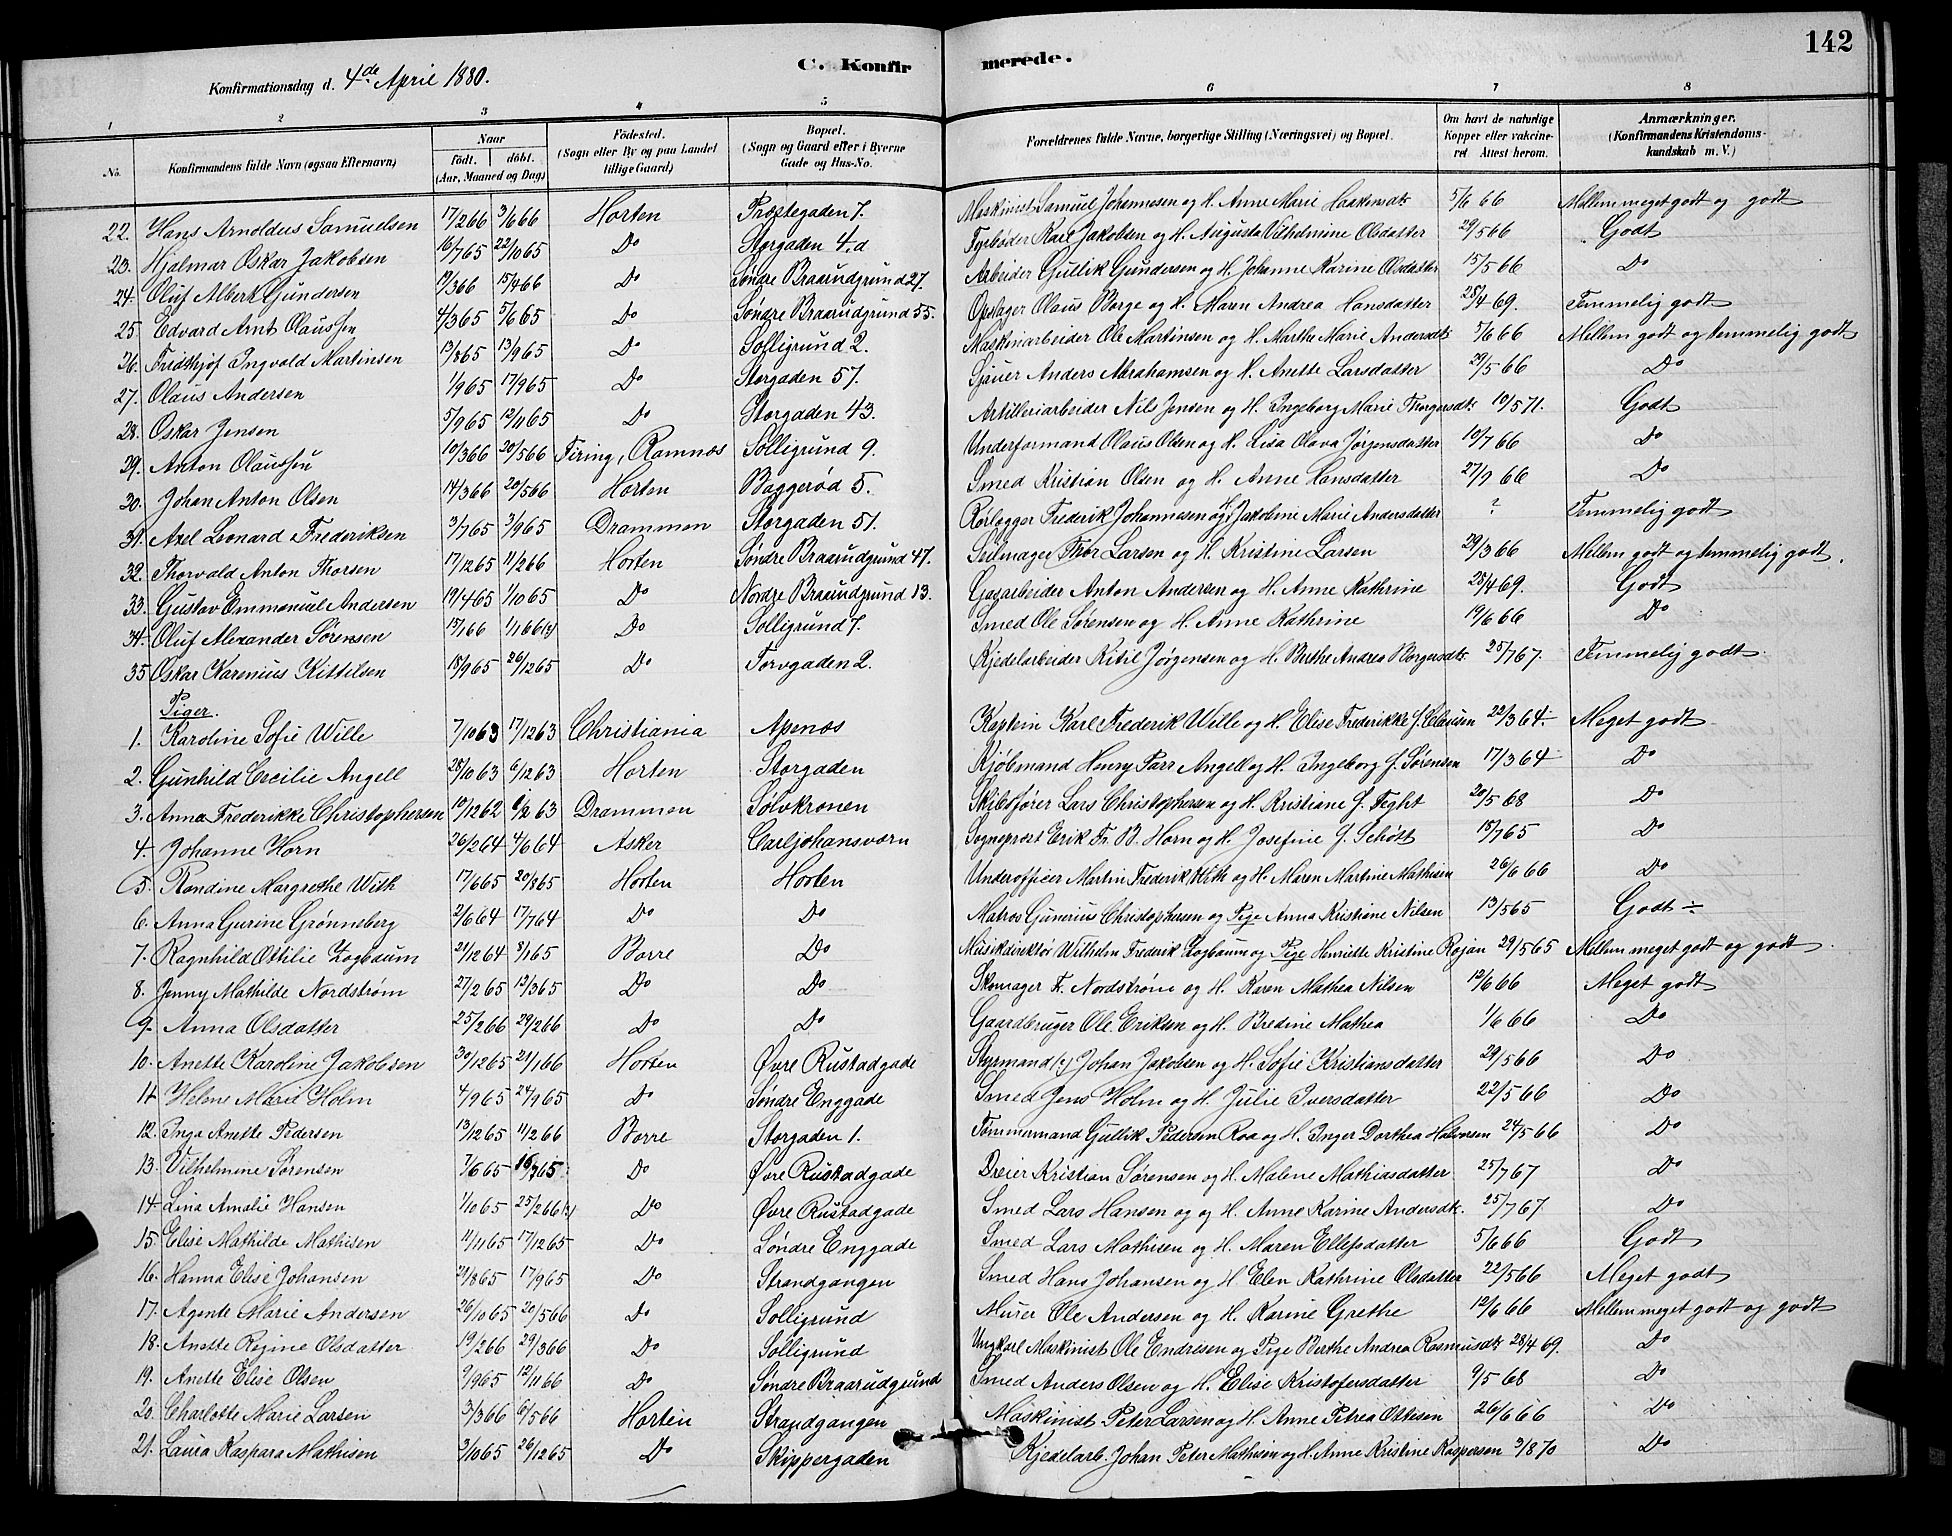 142
C. Konfirmerede.
Konfirmationsdag d. 4de April 1880.
1 2 3 4 5 6 7 8
No. Konfirmandens fulde Navn (ogsaa Efternavn) Naar født. døbt. (Aar, Maaned og Dag) Fødested. (Sogn eller By og paa Landet tillige Gaard) Bopæl. (Sogn og Gaard eller i Byerne Gade og Hus-No. Forældrenes fulde Navne, borgerlige Stilling (Næringsvei) og Bopæl. Om havt de naturlige Kopper eller vakcineret Attest herom. Anmærkninger. (Konfirmandens Kristendomskundskab m. V.)
22. Hans Arnoldus Samuelsen 17/2 66 3/6 66 Horten Præstegaden 7. Maskinist Samuel Johannesen og H. Anne Marie Haakensdtr 5/6 66 Mellem meget godt og godt
23. Hjalmar Oskar Jakobsen 16/7 65 22/10 65 Do Storgaden 4.d Fyrbøder Karl Jakobsen og H. Augusta Vilhelmine Olsdatter 29/5 66 Godt
24. Oluf Albert Gundersen 19/3 66 15/4 66 Do Søndre Braarudgrund 27. Arbeider Gullik Gundersen og H. Johanne Karine Olsdatter 15/5 66 Do
25. Edvard Arnt Olaussen 4/3 65 5/6 65 Do Søndre Braarudgrund 55. Opslager Olaus Borge og H. Maren Andrea Hansdatter 28/4 69. Temmelig godt
26. Fridthjof Ingvald Martinsen 13/8 65 13/9 65 Do Solligrund 2. Maskinarbeider Ole Martinsen og H. Marthe Marie Andersdtr 5/6 66 Mellem godt og temmelig godt
27. Olaus Andersen 1/9 65 17/9 65 Do Storgaden 57. Sjauer Anders Abrahamsen og H. Anette Larsdatter 29/5 66 Do
28. Oskar Jensen 5/9 65 12/11 65 Do Storgaden 43. Artilleriarbeider Nils Jensen og H. Ingeborg Marie Thorgersdtr 19/5 71. Godt
29. Anton Olaussen 10/3 66 20/5 66 Firing, Ramnæs Solligrund 9. Underformand Olaus Olsen og H. Lisa Olava Jørgensdatter 10/7 66 Do
30. Johan Anton Olsen 14/3 66 20/5 66 Horten Baggerød 5. Smed Kristian Olsen og H. Anne Hansdatter 27/9 66 Do
31. Axel Leonard Frederiksen 3/7 65 3/9 65 Drammen Storgaden 51. Rørlegger Frederik Johannesen og H. Jakobine Marie Andersdatter ? Temmelig godt
32. Thorvald Anton Thorsen 17/12 65 11/2 66 Horten Søndre Braarudgrund 47. Seilmager Thor Larsen og H. Kristine Larsen 29/3 66 Mellem godt og temmelig godt.
33. Gustav Emmanuel Andersen 19/4 65 1/10 65 Do Nordre Braarudgrund 13. Gasarbeider Anton Andersen og H. Anne Kathrine 28/4 69. Godt
34. Oluf Alexander Sørensen 15/1 66 1/1 66 (?) Do Solligrund 7. Smed Ole Sørensen og H. Anne Kathrine 19/6 66 Do
35 Oskar Karenius Kittilsen 18/9 65 26/12 65 Do Torvgaden 2. Kjedelarbeider Kitil Jørgensen og H. Berthe Andrea Borgersdtr. 25/7 67. Temmelig godt
Piger.
1. Karoline Sofie Wille 7/10 63 17/12 63 Christiania Apenæs Kaptein Karl Frederik Wille og H. Elise Frederikke f. Clausen 22/3 64. Meget godt
2. Gunhild Cecilie Angell 28/10 63 6/12 63 Horten Storgaden Kjøbmand Henry Parr Angell og H. Ingeborg f. Sørensen 17/3 64 Do
3. Anna Frederikke Christophersen 19/12 62 6/2 63 Drammen Sølvkronen Skibsfører Lars Christophersen og H. Kristiane f. Teght 20/5 68 Do
4. Johanne Horn 26/2 64 4/6 64 Asker Carljohansværn Sogneprost Erik Fr. B. Horn og H. Josefine f. Schøtt 18/7 65 Do
5. Randine Margrethe With 17/6 65 20/8 65 Horten Horten Underofficer Martin Frederik With og H. Maren Martine Mathisen 26/6 66 Do
6. Anna Gurine Grønneberg 2/6 64 17/7 64 Do Do Matros Gunerius Christophersen og Pige Anna Kristiane Nilsen 13/5 65 Godt ÷
7. Ragnhild Ottilie Zogbaum 21/12 64 8/1 65 Borre Do Musikdirektør Wilhelm Frederik Zogbaum og Pige Henriette Kristine Rojan 29/5 65 Mellem meget godt og godt
8. Jenny Mathilde Nordstrøm 27/2 65 12/3 65 Do Do Skomager F. Nordstrøm og H. Karen Mathea Nilsen 12/6 66 Meget godt
9. Anna Olsdatter 25/2 66 29/2 66 Do Do Gaardbruger Ole Eriksen og H. Bredine Mathea 1/6 66 Do
10. Anette Karoline Jakobsen 30/12 65 21/1 66 Horten Øvre Rustadgade Styrmand (?) Johan Jakobsen og H. Sofie Kristiansdatter 29/5 66 Do
11 Helene Marie Holm 4/9 65 24/9 65 Do Søndre Enggade Smed Jens Holm og H. Julie Iversdatter 22/5 66 Do
12. Inga Anette Pedersen 13/12 65 11/2 66 Borre Storgaden 1. Tømmermand Gullik Pedersen Roa og H. Inger Dorthea Halvorsen 24/5 66 Do
13. Vilhelmine Sørensen 7/6 65 16/7 65 Do Øvre Rustadgade Dreier Kristian Sørensen og H. Malene Mathiasdatter 25/7 67 Do
14. Lina Amalie Hansen 1/10 65 25/2 66 (?) Do Øvre Rustadgade Smed Lars Hansen og og H. Anne Karine Andersdtr. 25/7 67. Do
15. Elise Mathilde Mathisen 11/11 65 17/12 65 Do Søndre Enggade Smed Lars Mathisen og H. Maren Ellefsdatter 5/6 66 Godt
16. Hanna Elise Johansen 21/8 65 17/9 65 Do Strandgangen Smed Hans Johansen og H. Elen Kathrine Olsdatter 22/5 66 Meget godt
17. Agente Marie Andersen 26/10 65 20/5 66 Do Solligrund Murer Ole Andersen og H. Karine Grethe 12/6 66 Mellem meget godt og godt
18. Anette Regine Olsdatter 19/2 66 29/3 66 Do Solligrund Ungkarl Maskinist Ole Endresen og Pige Berthe Andrea Rasmusdtr 28/4 69. Do
19. Anette Elise Olsen 9/9 65 12/11 66 Do Søndre Braarudgrund Smed Anders Olsen og H. Elise Kristofersdatter 9/5 68 Do
20. Charlotte Marie Larsen 3/3 66 6/5 66 Horten Strandgangen Maskinist Peter Larsen og H. Anne Petrea Ottisen 26/6 66 Do
21. Laura Kaspara Mathisen 3/10 65 26/12 65 Do Skippergaden Kjedelarb. Johan Peter Mathisen og H. Anne Kristine Kaspersen 3/8 70 Do